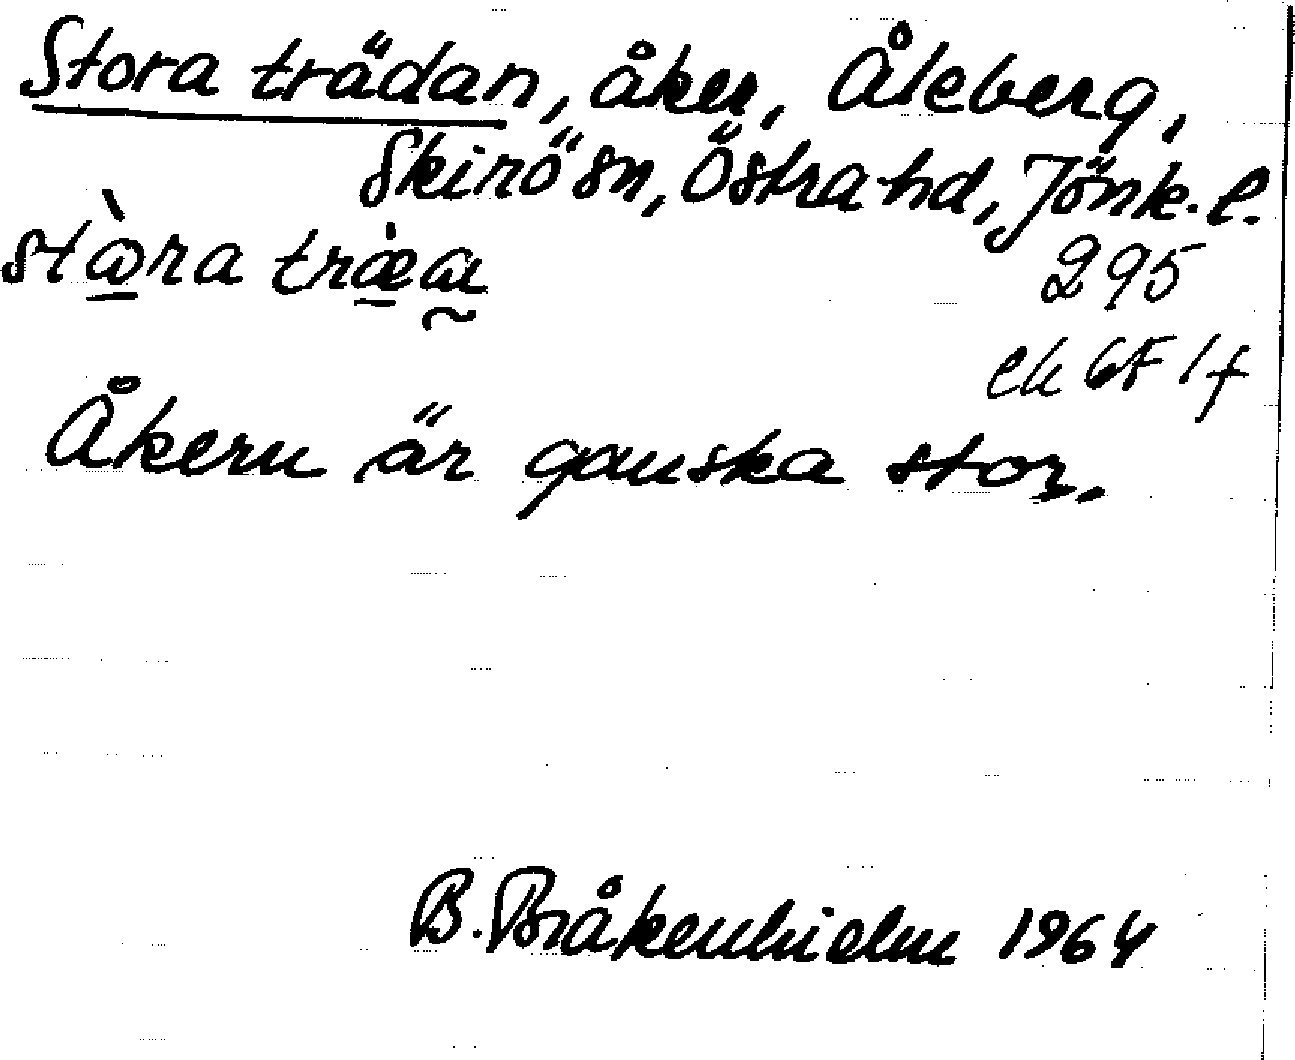 Stora trädan, åker, Åleberg,
Skirö sn, Östra hd, Jönk. l.
295
ek 6F 1f
Åkern är ganska stor.
B. Bråkenhielm 1964